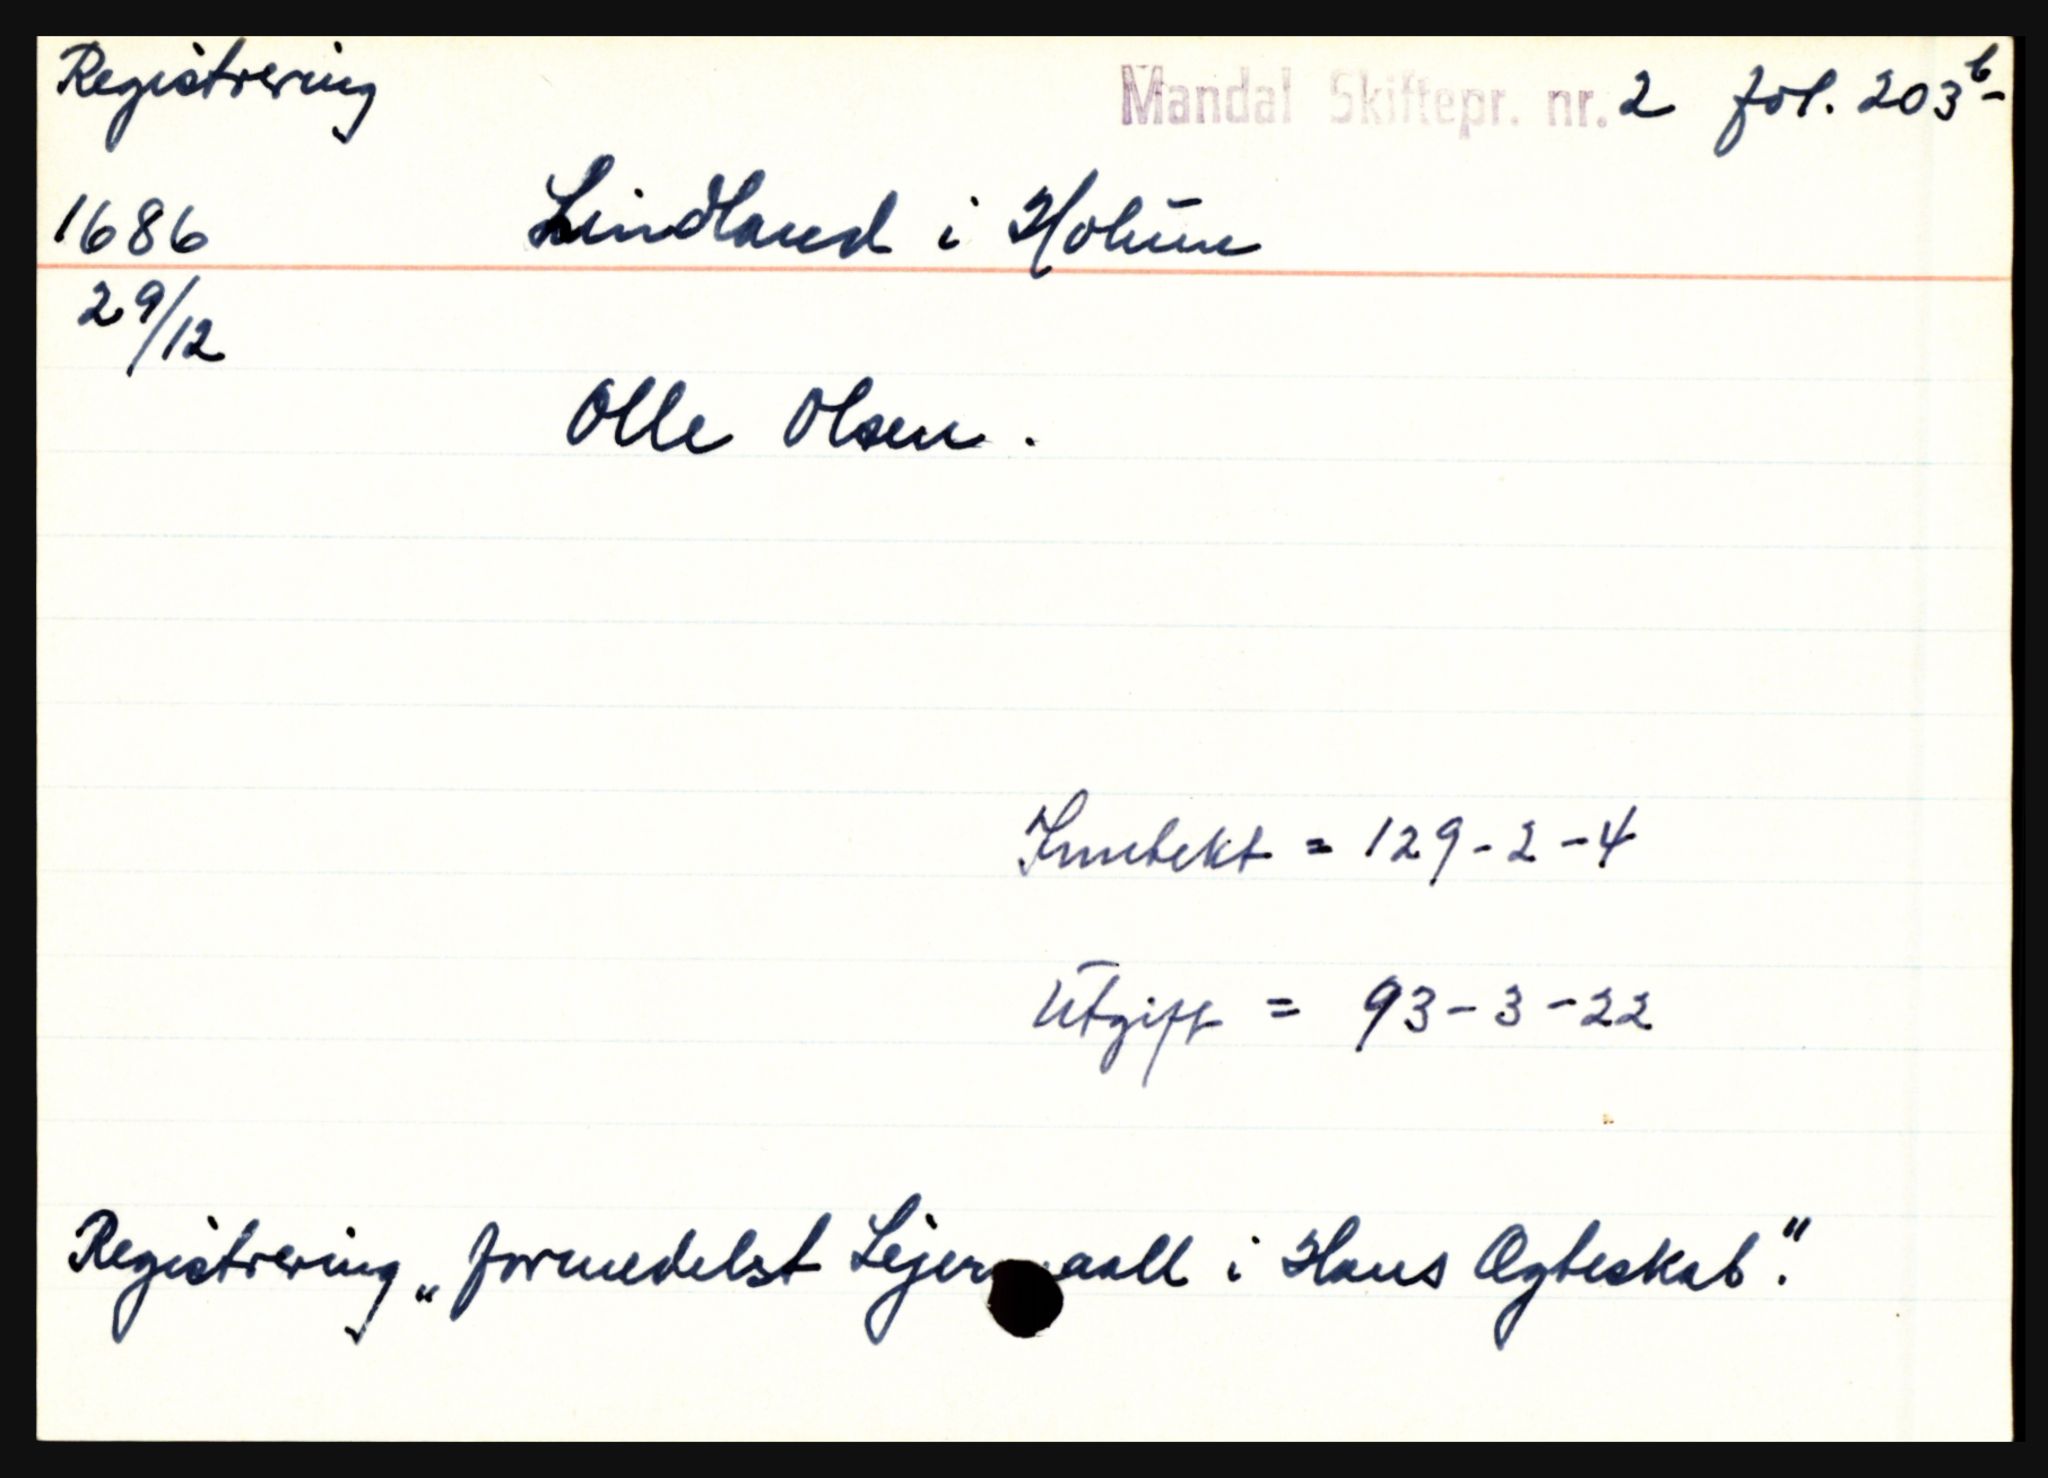 Registrering Mandal Skiftepr. nr. 2 fol. 203b-
1686 Lindland i Holum
29/12
Olle Olsen.
Inntekt = 129-2-4
Utgift = 93-3-22
Registrering „formedelst Lejermaall i Hans Ægteskab".